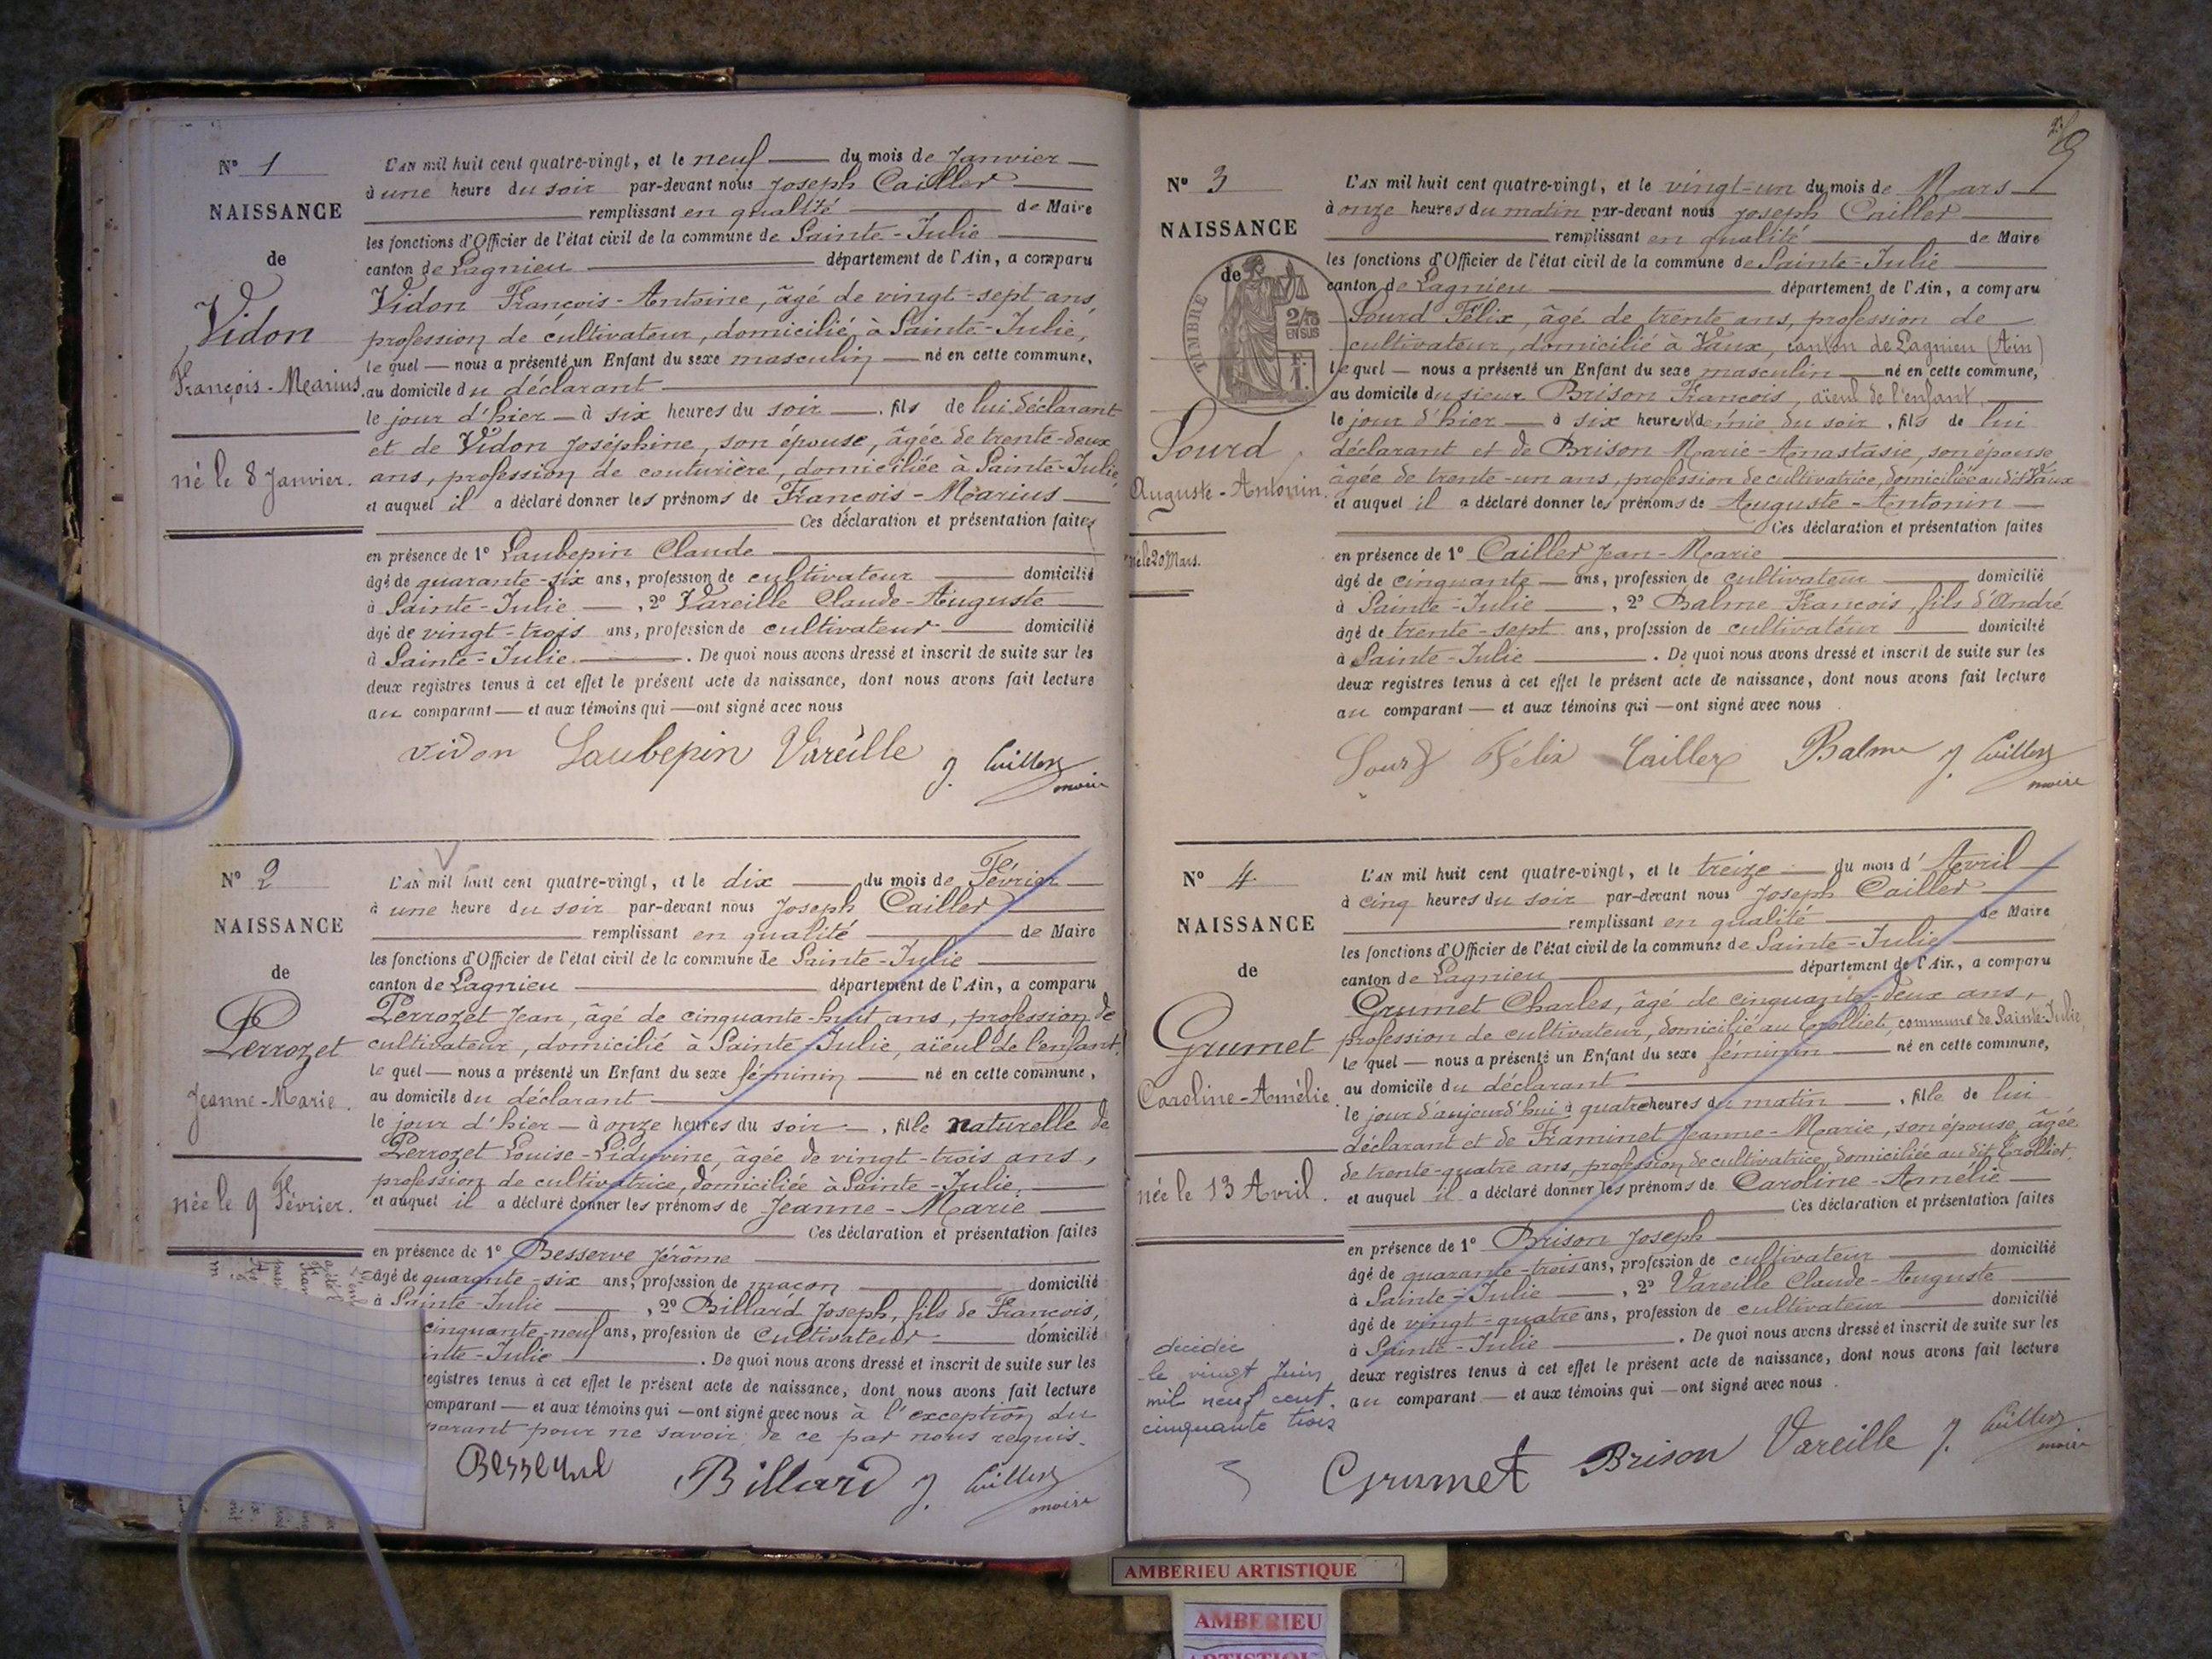 Nº 1
NAISSANCE
de
Vidon
François-Marius.
né le 8 Janvier.
L'AN mil huit cent quatre-vingt, et le neuf du mois de Janvier
à une heure du soir par-devant nous Joseph Cailler
remplissant en qualité de Maire
les fonctions d'Officier de l'état civil de la commune de Sainte-Julie
canton de Lagnieu département de l'Ain, a comparu
Vidon François-Antoine, âgé de vingt-sept ans,
profession de cultivateur, domicilié à Sainte-Julie,
lequel nous a présenté un Enfant du sexe masculin né en cette commune,
au domicile du déclarant
le jour d'hier à six heures du soir, fils de lui déclarant
et de Vidon Joséphine, son épouse, âgée de trente-deux
ans, profession de couturière, domiciliée à Sainte-Julie,
et auquel il a déclaré donner les prénoms de François-Marius
Ces déclaration et présentation faites
en présence de 1º Laubepin Claude
âgé de quarante-six ans, profession de cultivateur domicilié
à Sainte-Julie, 2º Vareille Claude-Auguste
âgé de vingt-trois ans, profession de cultivateur domicilié
à Sainte-Julie. De quoi nous avons dressé et inscrit de suite sur les
deux registres tenus à cet effet le présent acte de naissance, dont nous avons fait lecture
au comparant et aux témoins qui ont signé avec nous
Vidon Laubepin Vareille J. Cailler
maire
Nº 2
NAISSANCE
de
Perrozet
Jeanne-Marie.
née le 9 Février.
L'AN mil huit cent quatre-vingt, et le dix du mois de Février
à une heure du soir par-devant nous Joseph Cailler
remplissant en qualité de Maire
les fonctions d'Officier de l'état civil de la commune de Sainte-Julie
canton de Lagnieu département de l'Ain, a comparu
Perrozet Jean, âgé de cinquante-huit ans, profession de
cultivateur, domicilié à Sainte-Julie, aïeul de l'enfant,
lequel nous a présenté un Enfant du sexe féminin né en cette commune,
au domicile du déclarant
le jour d'hier à onze heures du soir, fille naturelle de
Perrozet Louise-Liduvine, âgée de vingt-trois ans,
profession de cultivatrice, domiciliée à Sainte-Julie,
et auquel il a déclaré donner les prénoms de Jeanne-Marie
Ces déclaration et présentation faites
en présence de 1º Besserve Jérôme
âgé de quarante-six ans, profession de maçon domicilié
à Sainte-Julie, 2º Billard Joseph, fils de François,
cinquante-neuf ans, profession de Cultivateur domicilié
inte-Julie. De quoi nous avons dressé et inscrit de suite sur les
registres tenus à cet effet le présent acte de naissance, dont nous avons fait lecture
omparant et aux témoins qui ont signé avec nous à l'exception du
parant pour ne savoir de ce par nous requis.
Besserve Billard J. Cailler
maire
Nº 3
NAISSANCE
de
TIMBRE
2/10
EN SUS
Sourd
Auguste-Antonin.
né le 20 Mars.
L'AN mil huit cent quatre-vingt, et le vingt-un du mois de Mars
à onze heures du matin par-devant nous Joseph Cailler
remplissant en qualité de Maire
les fonctions d'Officier de l'état civil de la commune de Sainte-Julie
canton de Lagnieu département de l'Ain, a comparu
Sourd Félix, âgé de trente ans, profession de
cultivateur, domicilié à Vaux, canton de Lagnieu (Ain)
lequel nous a présenté un Enfant du sexe masculin né en cette commune,
au domicile du sieur Brison François, aïeul de l'enfant,
le jour d'hier à six heures & demie du soir, fils de lui
déclarant et de Brison Marie-Anastasie, son épouse,
âgée de trente-un ans, profession de cultivatrice, domiciliée au dit Vaux
et auquel il a déclaré donner les prénoms de Auguste-Antonin
Ces déclaration et présentation faites
en présence de 1º Cailler Jean-Marie
âgé de cinquante ans, profession de cultivateur domicilié
à Sainte-Julie, 2º Balme François, fils d'André
âgé de trente-sept ans, profession de cultivateur domicilié
à Sainte-Julie. De quoi nous avons dressé et inscrit de suite sur les
deux registres tenus à cet effet le présent acte de naissance, dont nous avons fait lecture
au comparant et aux témoins qui ont signé avec nous.
Sourd Félix Cailler Balme J. Cailler
maire
Nº 4
NAISSANCE
de
Grumet
Caroline-Amélie
née le 13 Avril.
décédée
le vingt Juin
mil neuf cent
cinquante trois
L'AN mil huit cent quatre-vingt, et le treize du mois d'Avril
à cinq heures du soir par-devant nous Joseph Cailler
remplissant en qualité de Maire
les fonctions d'Officier de l'état civil de la commune de Sainte-Julie
canton de Lagnieu département de l'Ain, a comparu
Grumet Charles, âgé de cinquante-deux ans,
profession de cultivateur, domicilié au Trolliet, commune de Sainte-Julie,
lequel nous a présenté un Enfant du sexe féminin né en cette commune,
au domicile du déclarant
le jour d'aujourd'hui à quatre heures du matin, fille de lui
déclarant et de Framinet Jeanne-Marie, son épouse, âgée
de trente-quatre ans, profession de cultivatrice, domiciliée au dit Trolliet,
et auquel il a déclaré donner les prénoms de Caroline-Amélie
Ces déclaration et présentation faites
en présence de 1º Brison Joseph
âgé de quarante-trois ans, profession de cultivateur domicilié
à Sainte-Julie, 2º Vareille Claude-Auguste
âgé de vingt-quatre ans, profession de cultivateur domicilié
à Sainte-Julie. De quoi nous avons dressé et inscrit de suite sur les
deux registres tenus à cet effet le présent acte de naissance, dont nous avons fait lecture
au comparant et aux témoins qui ont signé avec nous.
Grumet Brison Vareille J. Cailler
maire
AMBERIEU ARTISTIQUE
AMBERIEU